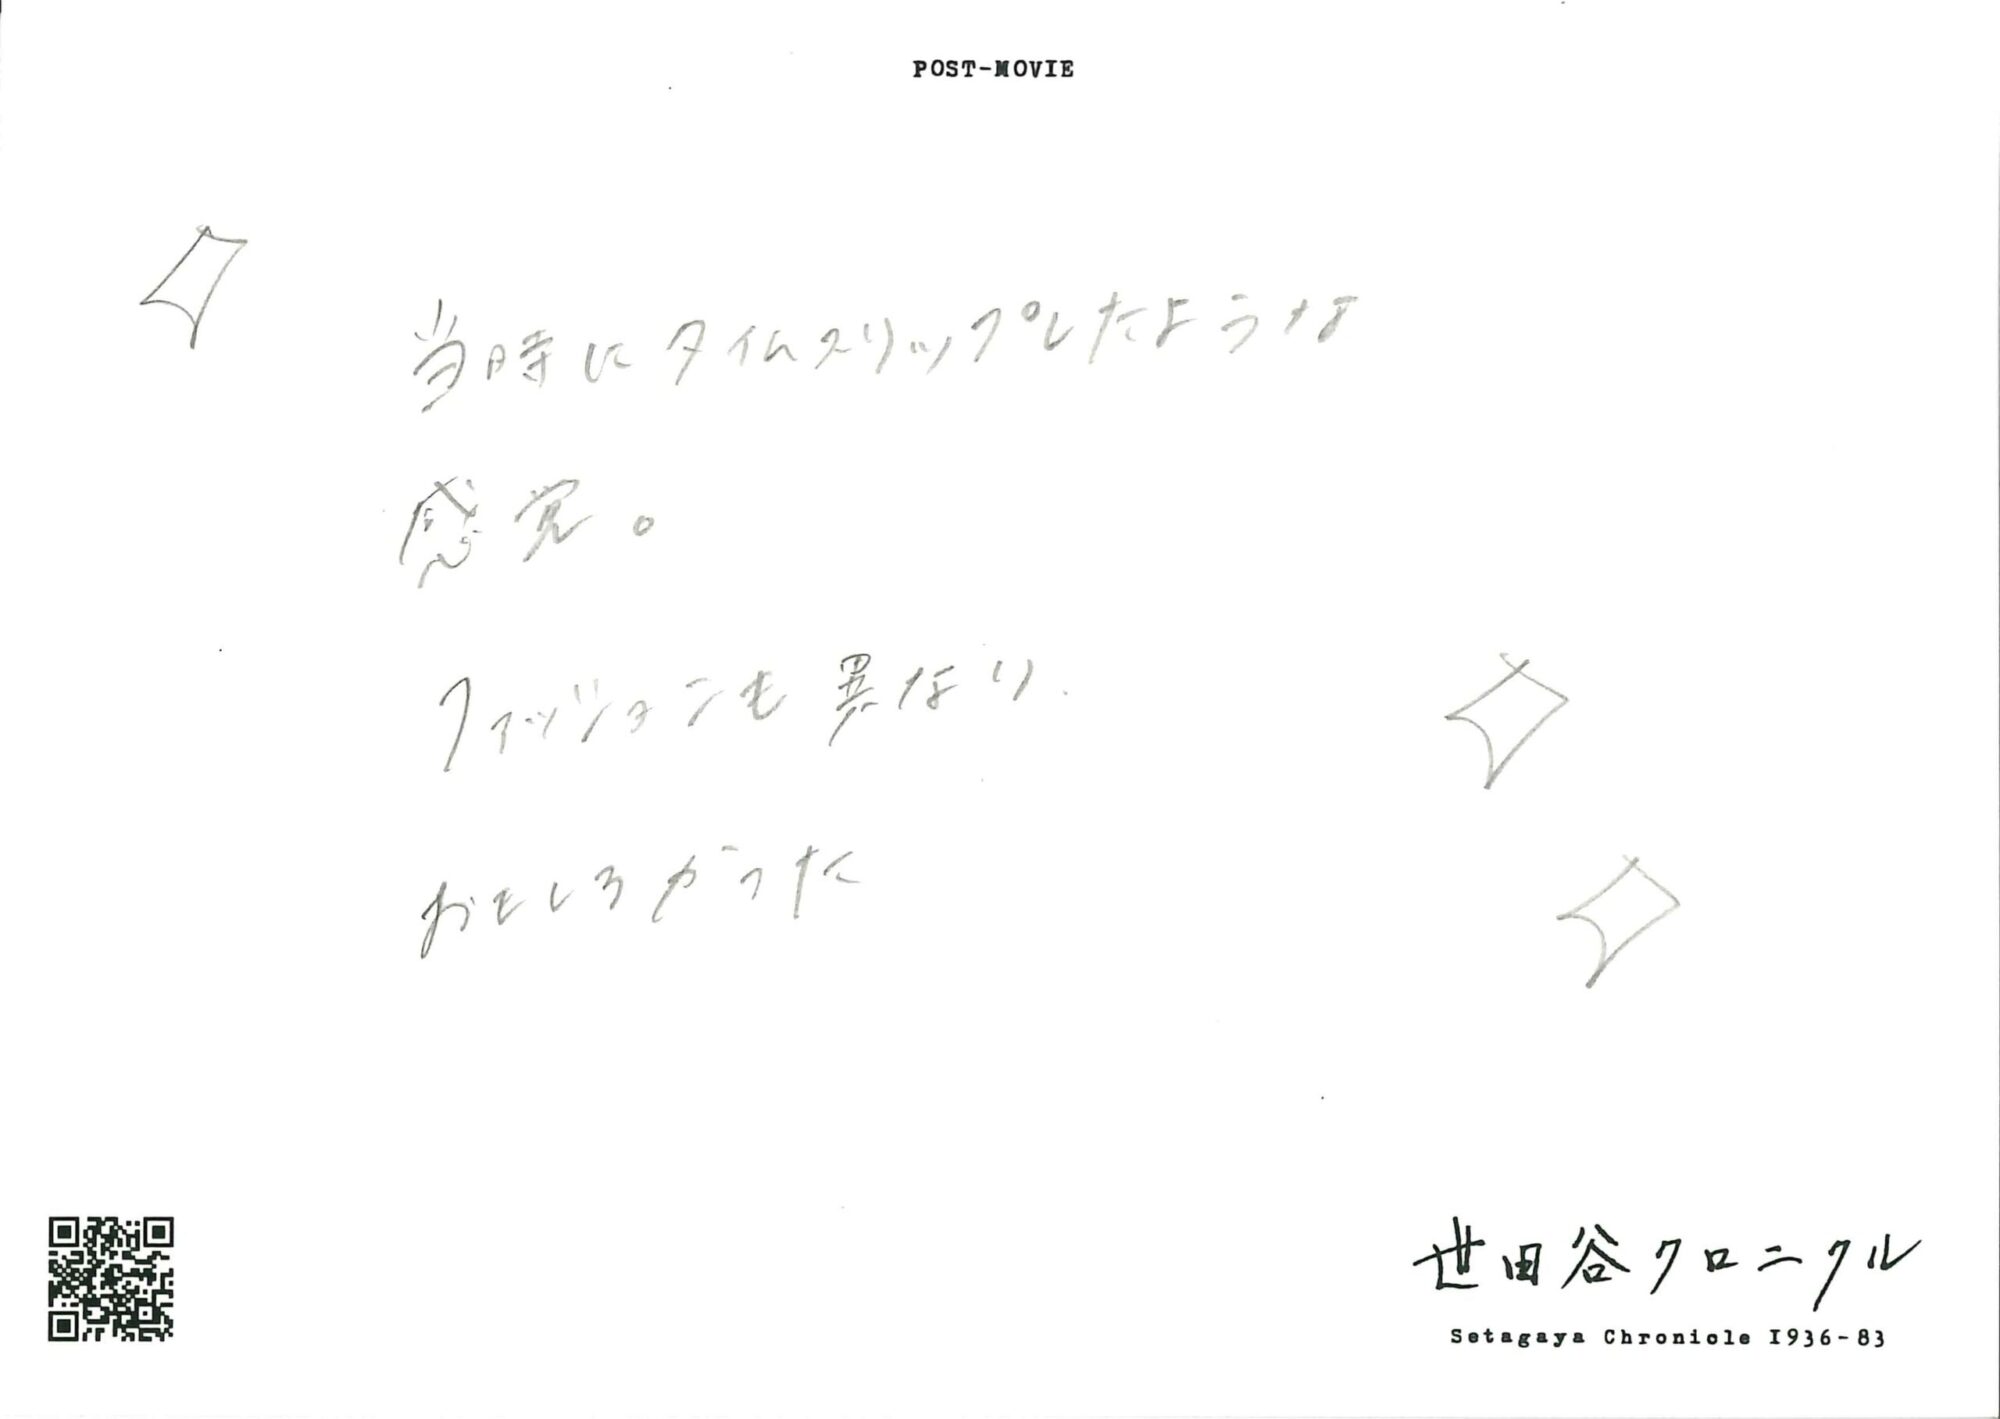 POST-MOVIE
当時にタイムスリップしたような
感覚。
ファッションも異なり、
おもしろかった
世田谷クロニクル
Setagaya Chronicle 1936-83